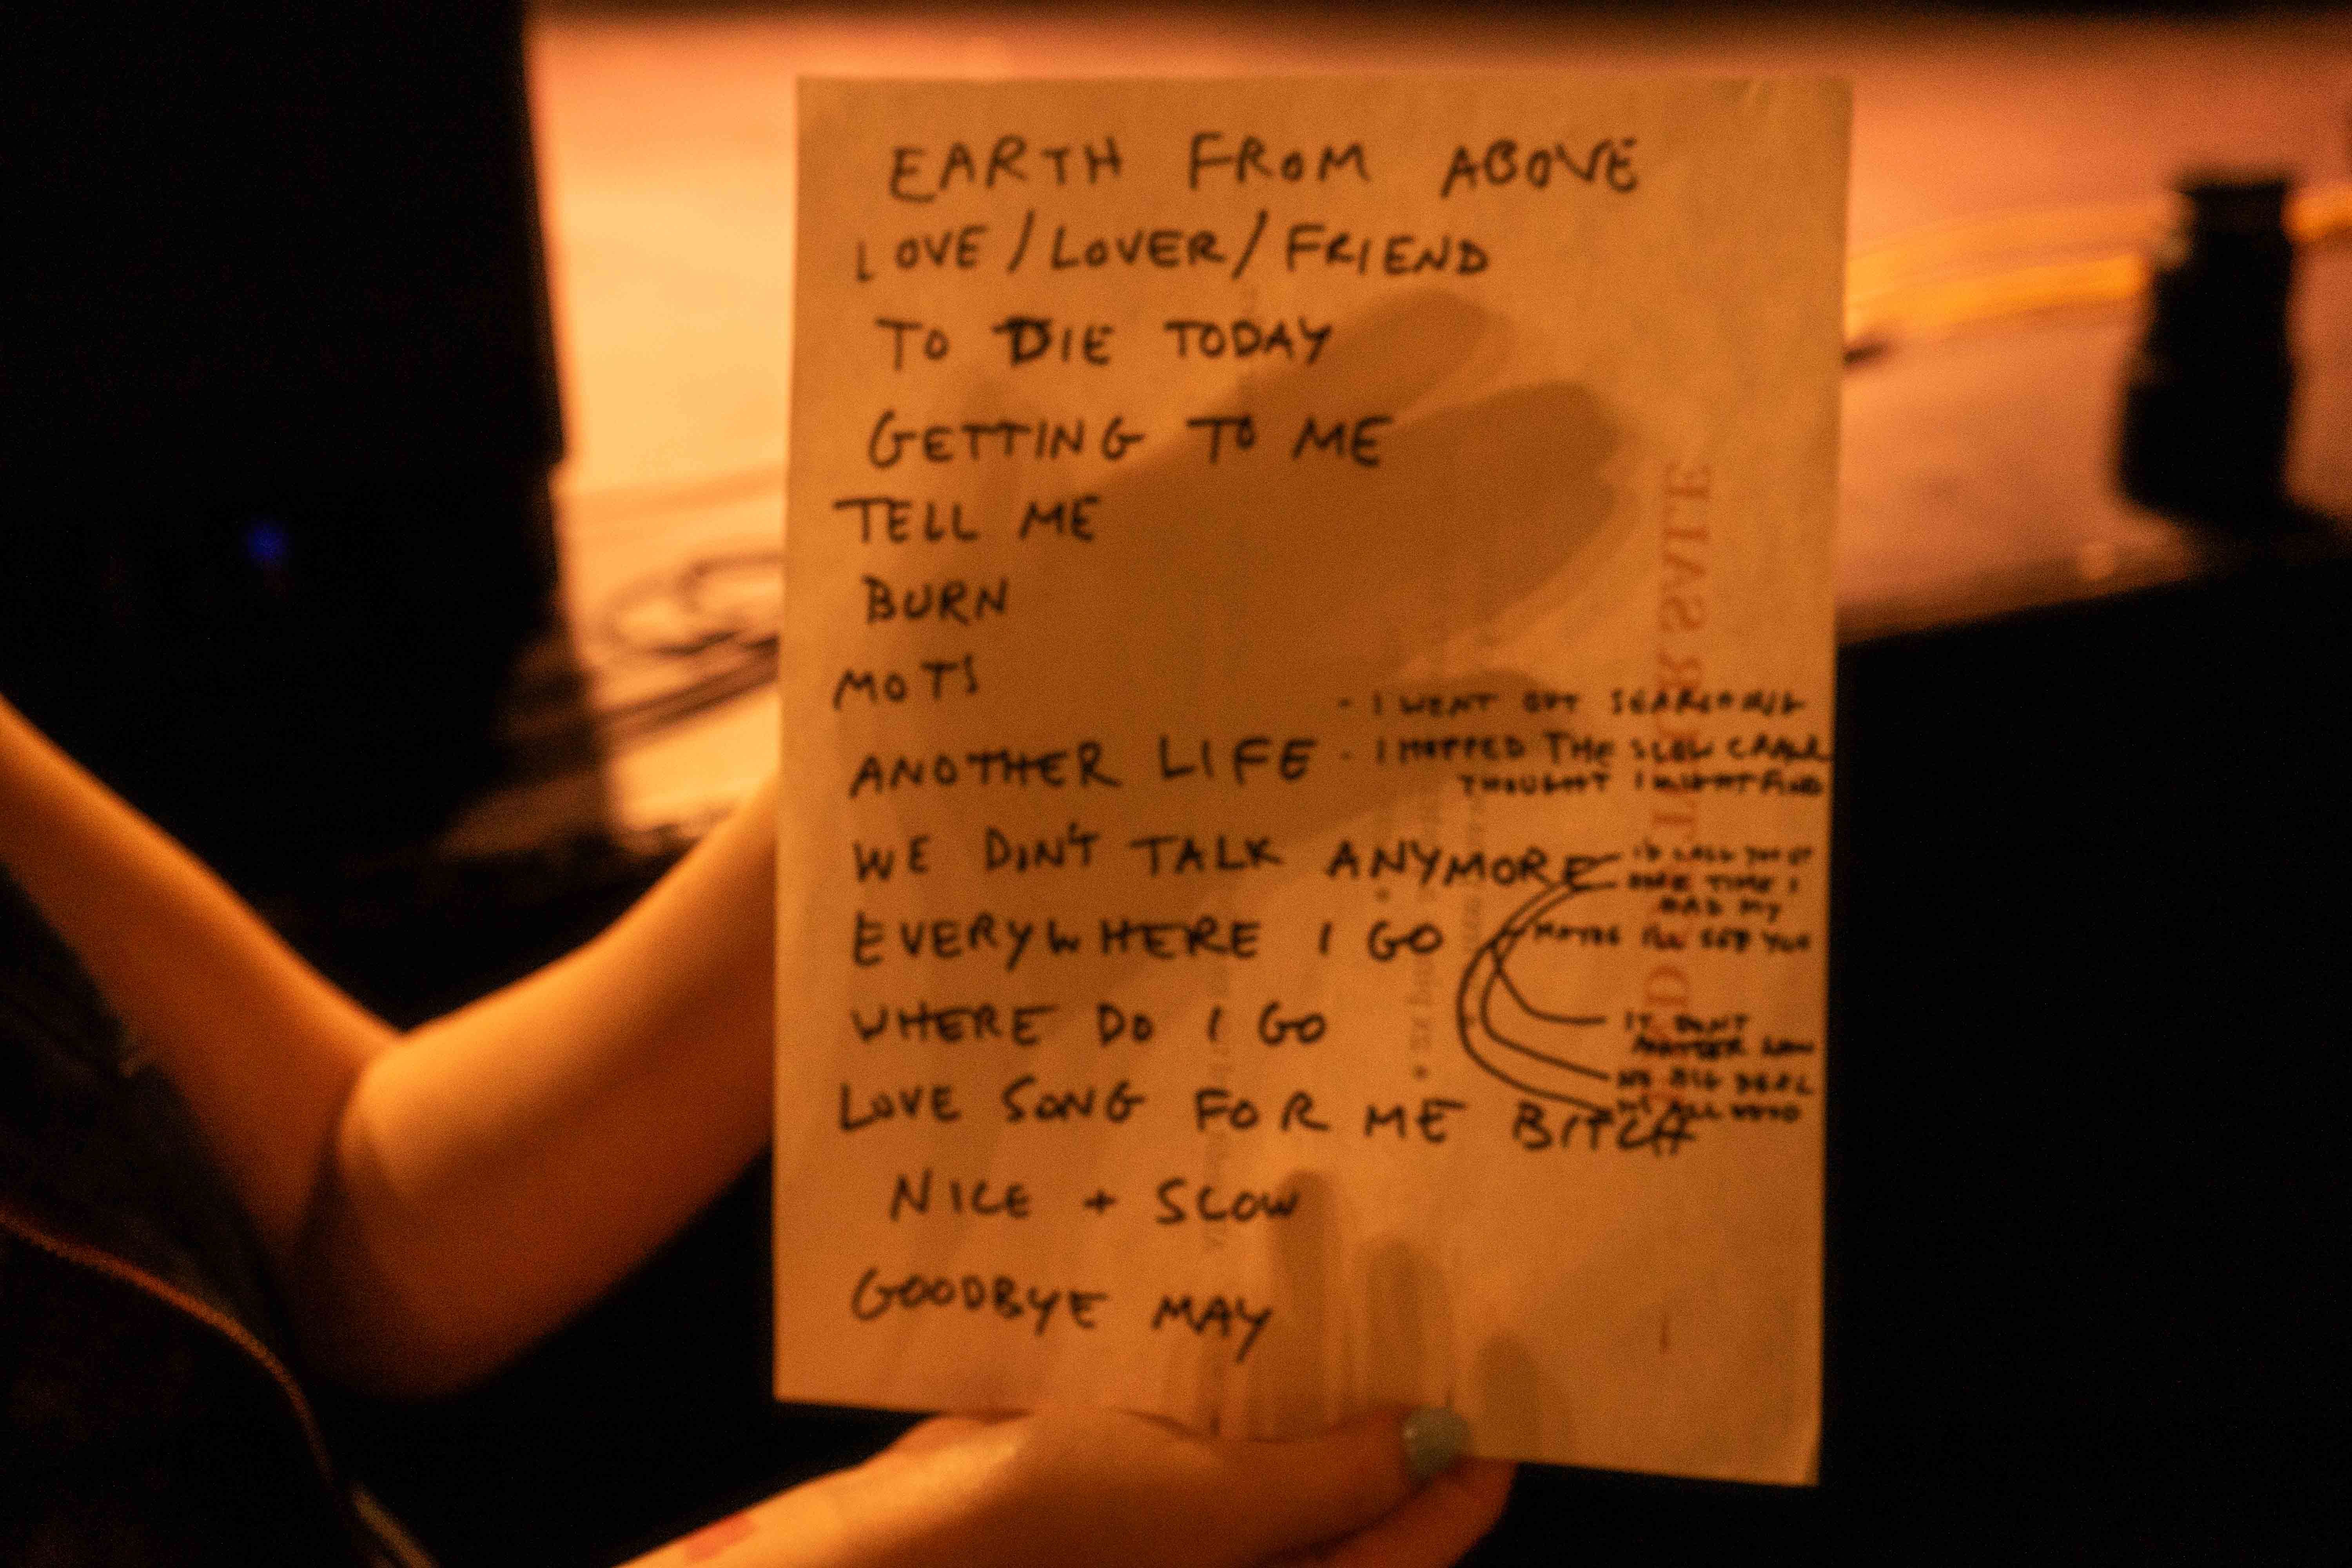 EARTH FROM ABOVE
LOVE / LOVER / FRIEND
TO DIE TODAY
GETTING TO ME
TELL ME
BURN
MOTS
- I WENT OUT SEARCHING
ANOTHER LIFE - I HOPPED THE SLOW CRAWL
THOUGHT I MIGHT FIND
WE DON'T TALK ANYMORE
ONE TIME I
HAD MY
EVERYWHERE I GO
MAYBE I'LL SEE YOU
WHERE DO I GO
IT DON'T
LOVE SONG FOR ME BITCH
NO BIG DEAL
ALL GOOD
NICE + SLOW
GOODBYE MAY